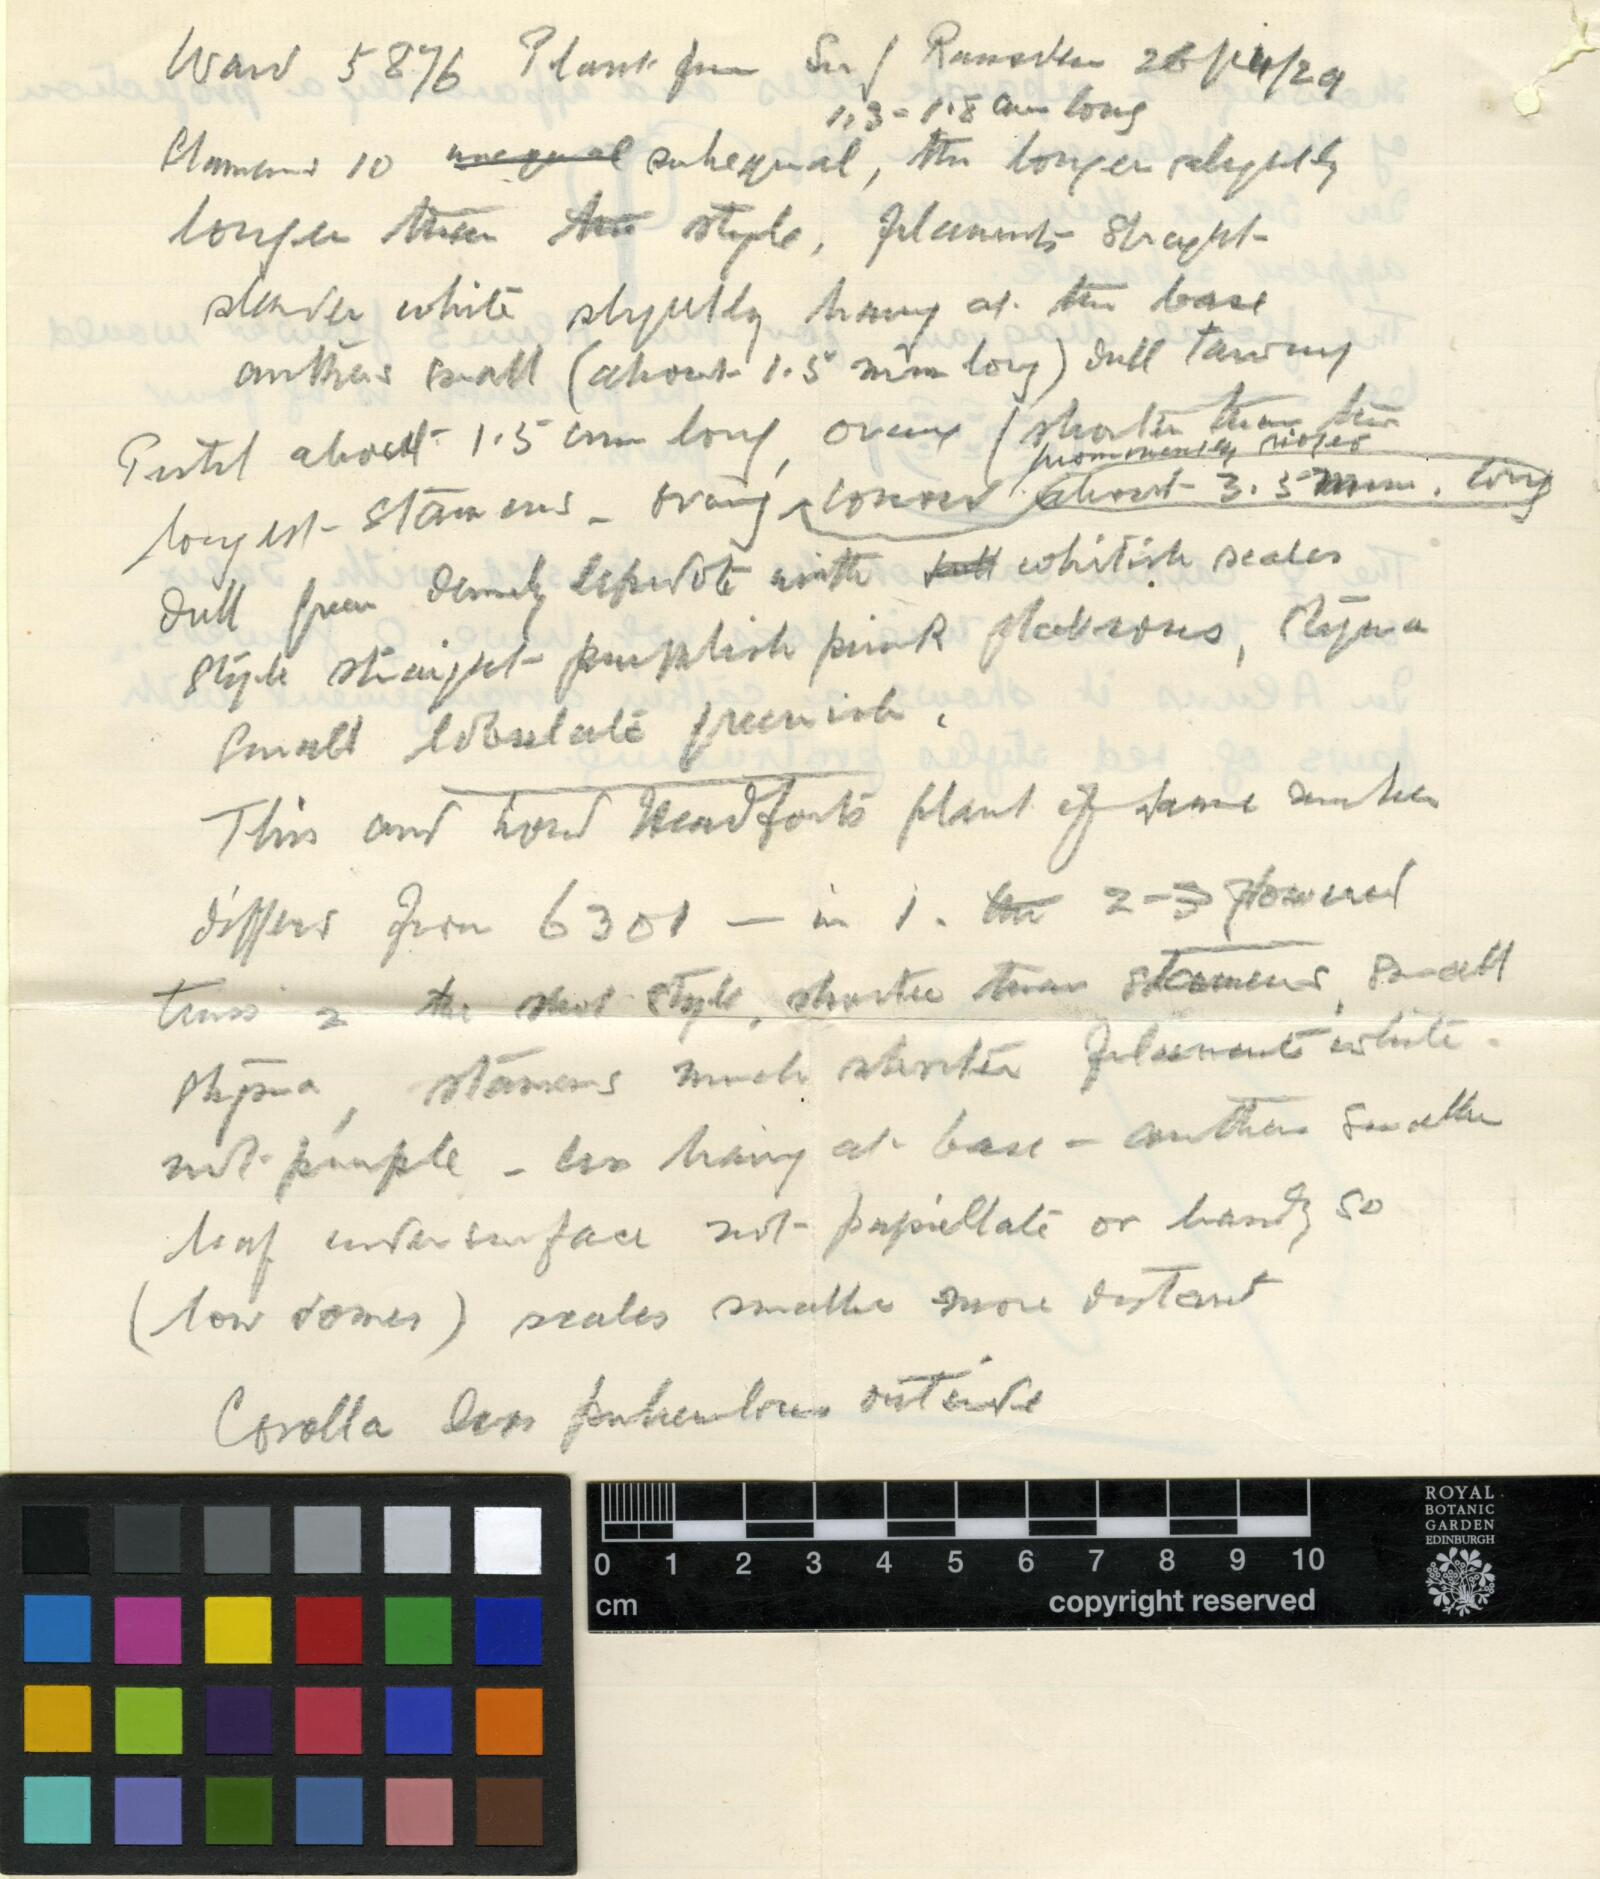 Ward 5876 Plant from Sir J Ramsden 26/4/29
1.3 - 1.8 cm long
Stamens 10 unequal subequal, the longer slightly
longer than the style, filaments straight
slender white slightly hairy at the base
anthers small (about 1.5 mm long) dull tawny
Pistil about 1.5 cm long, ovary (shorter than the
prominently ridged
longest stamens - ovary conoid about 3.5 mm. long
dull green densely lepidote with whitish scales
style straight purplish pink glabrous, stigma
small lobulate greenish.
This and Lord Headfort's plant of same number
differs from 6301 - in 1. the 2-3 flowered
truss 2 the short style, shorter than stamens, small
stigma, stamens much shorter filaments white -
not purple - less hairy at base - anthers smaller
leaf undersurface not papillate or hardly so
(low domes) scales smaller more distant
Corolla less puberulous outside
0 1 2 3 4 5 6 7 8 9 10
cm
copyright reserved
ROYAL
BOTANIC
GARDEN
EDINBURGH